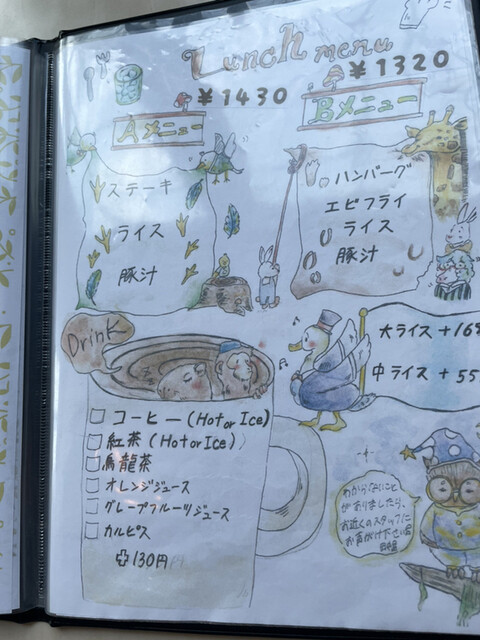 Lunch menu
¥1430
¥1320
Aメニュー
Bメニュー
ステーキ
ライス
豚汁
ハンバーグ
エビフライ
ライス
豚汁
Drink
大ライス +16
中ライス + 55
コーヒー(Hot or Ice)
紅茶(Hot or Ice)
烏龍茶
オレンジジュース
グレープフルーツジュース
カルピス
130円
わからないこと
がありましたら、
お近くのスタッフに
お声がけ下さい